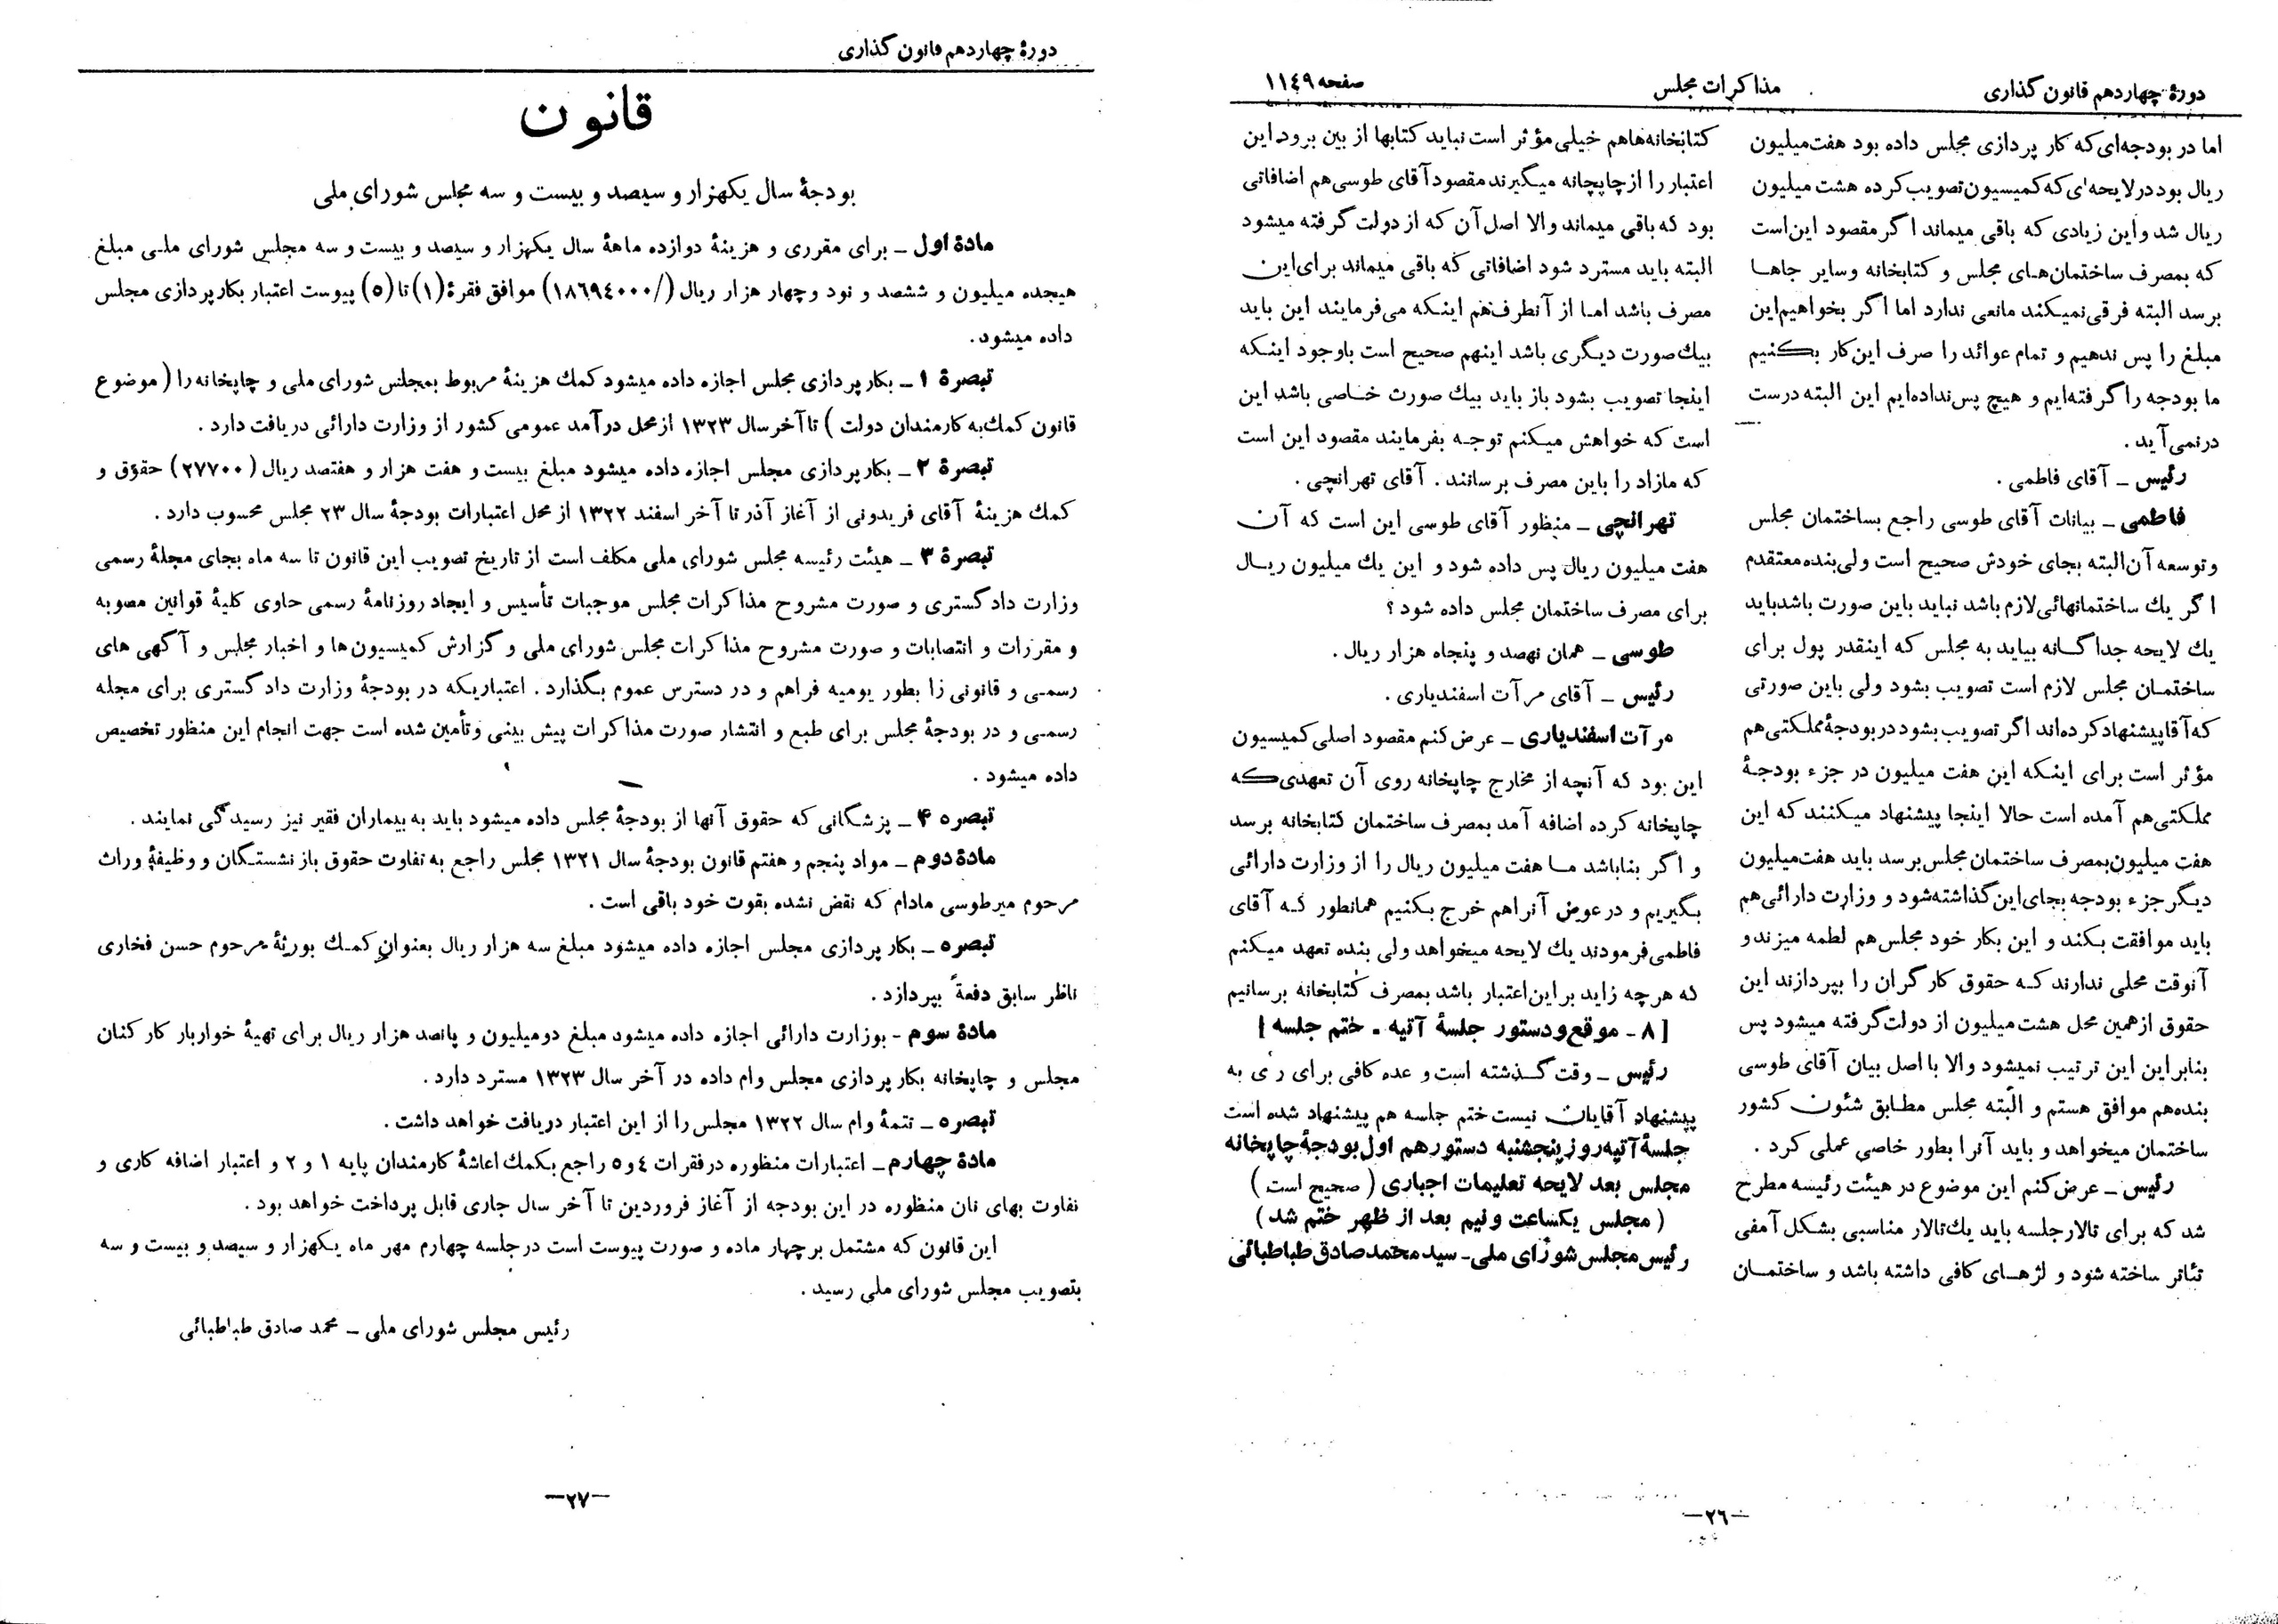 دورهٔ چهاردهم قانون گذاری
مذاکرات مجلس
صفحه ۱۱٤۹
اما در بودجه‌ای که کار پردازی مجلس داده بود هفت میلیون
ریال بود در لایحه‌ای که کمیسیون تصویب کرده هشت میلیون
ریال شد و این زیادی که باقی میماند اگر مقصود این است
که بمصرف ساختمان‌های مجلس و کتابخانه و سایر جاها
برسد البته فرقی نمیکند مانعی ندارد اما اگر بخواهیم این
مبلغ را پس ندهیم و تمام عوائد را صرف این کار بکنیم
ما بودجه را گرفته‌ایم و هیچ پس نداده‌ایم این البته درست
درنمی‌آید .
رئیس ــ آقای فاطمی .
فاطمی ــ بیانات آقای طوسی راجع بساختمان مجلس
و توسعه آن البته بجای خودش صحیح است ولی بنده معتقدم
اگر یك ساختمانهائی لازم باشد نباید باین صورت باشد باید
یك لایحه جداگانه بیاید به مجلس که اینقدر پول برای
ساختمان مجلس لازم است تصویب بشود ولی باین صورتی
که آقا پیشنهاد کرده‌اند اگر تصویب بشود در بودجهٔ مملکتی هم
مؤثر است برای اینکه این هفت میلیون در جزء بودجهٔ
مملکتی هم آمده است حالا اینجا پیشنهاد میکنند که این
هفت میلیون بمصرف ساختمان مجلس برسد باید هفت میلیون
دیگر جزء بودجه بجای این گذاشته شود و وزارت دارائی هم
باید موافقت بکند و این بکار خود مجلس هم لطمه میزند و
آنوقت محلی ندارند که حقوق کارگران را بپردازند این
حقوق از همین محل هشت میلیون از دولت گرفته میشود پس
بنابراین این ترتیب نمیشود والا با اصل بیان آقای طوسی
بنده هم موافق هستم و البته مجلس مطابق شئون کشور
ساختمان میخواهد و باید آنرا بطور خاصی عملی کرد .
رئیس ــ عرض کنم این موضوع در هیئت رئیسه مطرح
شد که برای تالار جلسه باید یك تالار مناسبی بشکل آمفی
تئاتر ساخته شود و لژهای کافی داشته باشد و ساختمان
کتابخانه‌ها هم خیلی مؤثر است نباید کتابها از بین برود این
اعتبار را از چاپخانه میگیرند مقصود آقای طوسی هم اضافاتی
بود که باقی میماند والا اصل آن که از دولت گرفته میشود
البته باید مسترد شود اضافاتی که باقی میماند برای این
مصرف باشد اما از آنطرف هم اینکه می‌فرمایند این باید
بیك صورت دیگری باشد اینهم صحیح است باوجود اینکه
اینجا تصویب بشود باز باید بیك صورت خاصی باشد این
است که خواهش میکنم توجه بفرمایند مقصود این است
که مازاد را باین مصرف برسانند . آقای تهرانچی .
تهرانچی ــ منظور آقای طوسی این است که آن
هفت میلیون ریال پس داده شود و این یك میلیون ریال
برای مصرف ساختمان مجلس داده شود ؟
طوسی ــ همان نهصد و پنجاه هزار ریال .
رئیس ــ آقای مرآت اسفندیاری .
مرآت اسفندیاری ــ عرض کنم مقصود اصلی کمیسیون
این بود که آنچه از مخارج چاپخانه روی آن تعهدی که
چاپخانه کرده اضافه آمد بمصرف ساختمان کتابخانه برسد
و اگر بنا باشد ما هفت میلیون ریال را از وزارت دارائی
بگیریم و در عوض آنرا هم خرج بکنیم همانطور که آقای
فاطمی فرمودند یك لایحه میخواهد ولی بنده تعهد میکنم
که هرچه زاید بر این اعتبار باشد بمصرف کتابخانه برسانیم
[ ۸ - موقع و دستور جلسهٔ آتیه - ختم جلسه ]
رئیس ــ وقت گذشته است و عده کافی برای رأی به
پیشنهاد آقایان نیست ختم جلسه هم پیشنهاد شده است
جلسهٔ آتیه روز پنجشنبه دستور هم اول بودجهٔ چاپخانه
مجلس بعد لایحه تعلیمات اجباری ( صحیح است )
( مجلس یکساعت و نیم بعد از ظهر ختم شد )
رئیس مجلس شورای ملی ـ سید محمد صادق طباطبائی
—۲٦—
دورهٔ چهاردهم قانون گذاری
قانون
بودجهٔ سال یکهزار و سیصد و بیست و سه مجلس شورای ملی
مادهٔ اول ــ برای مقرری و هزینهٔ دوازده ماههٔ سال یکهزار و سیصد و بیست و سه مجلس شورای ملی مبلغ
هیجده میلیون و ششصد و نود و چهار هزار ریال (/۱۸٦۹٤۰۰۰) موافق فقرهٔ (۱) تا (٥) پیوست اعتبار بکارپردازی مجلس
داده میشود.
تبصرهٔ ۱ ــ بکارپردازی مجلس اجازه داده میشود کمك هزینهٔ مربوط بمجلس شورای ملی و چاپخانه را ( موضوع
قانون کمك به کارمندان دولت ) تا آخر سال ۱۳۲۳ از محل درآمد عمومی کشور از وزارت دارائی دریافت دارد .
تبصرهٔ ۲ ــ بکارپردازی مجلس اجازه داده میشود مبلغ بیست و هفت هزار و هفتصد ریال ( ۲۷۷۰۰ ) حقوق و
کمك هزینهٔ آقای فریدونی از آغاز آذر تا آخر اسفند ۱۳۲۲ از محل اعتبارات بودجهٔ سال ۲۳ مجلس محسوب دارد .
تبصرهٔ ۳ ــ هیئت رئیسه مجلس شورای ملی مکلف است از تاریخ تصویب این قانون تا سه ماه بجای مجلهٔ رسمی
وزارت دادگستری و صورت مشروح مذاکرات مجلس موجبات تأسیس و ایجاد روزنامهٔ رسمی حاوی کلیهٔ قوانین مصوبه
و مقررات و انتصابات و صورت مشروح مذاکرات مجلس شورای ملی و گزارش کمیسیون‌ها و اخبار مجلس و آگهی های
رسمی و قانونی را بطور یومیه فراهم و در دسترس عموم بگذارد . اعتباریکه در بودجهٔ وزارت دادگستری برای مجله
رسمی و در بودجهٔ مجلس برای طبع و انتشار صورت مذاکرات پیش بینی و تأمین شده است جهت انجام این منظور تخصیص
داده میشود .
تبصره ۴ ــ پزشگانی که حقوق آنها از بودجهٔ مجلس داده میشود باید به بیماران فقیر نیز رسیدگی نمایند .
مادهٔ دوم ــ مواد پنجم و هفتم قانون بودجهٔ سال ۱۳۲۱ مجلس راجع به تفاوت حقوق بازنشستگان و وظیفهٔ وراث
مرحوم میرطوسی مادام که نقض نشده بقوت خود باقی است .
تبصره ــ بکارپردازی مجلس اجازه داده میشود مبلغ سه هزار ریال بعنوان کمك بورثهٔ مرحوم حسن فخاری
ناظر سابق دفعةً بپردازد .
مادهٔ سوم - بوزارت دارائی اجازه داده میشود مبلغ دو میلیون و پانصد هزار ریال برای تهیهٔ خواربار کارکنان
مجلس و چاپخانه بکارپردازی مجلس وام داده در آخر سال ۱۳۲۳ مسترد دارد .
تبصره ــ تتمهٔ وام سال ۱۳۲۲ مجلس را از این اعتبار دریافت خواهد داشت .
مادهٔ چهارم ــ اعتبارات منظوره در فقرات ٤ و ٥ راجع بکمك اعاشهٔ کارمندان پایه ۱ و ۲ و اعتبار اضافه کاری و
تفاوت بهای نان منظوره در این بودجه از آغاز فروردین تا آخر سال جاری قابل پرداخت خواهد بود .
این قانون که مشتمل بر چهار ماده و صورت پیوست است در جلسه چهارم مهر ماه یکهزار و سیصد و بیست و سه
بتصویب مجلس شورای ملی رسید .
رئیس مجلس شورای ملی ــ محمد صادق طباطبائی
—۲۷—